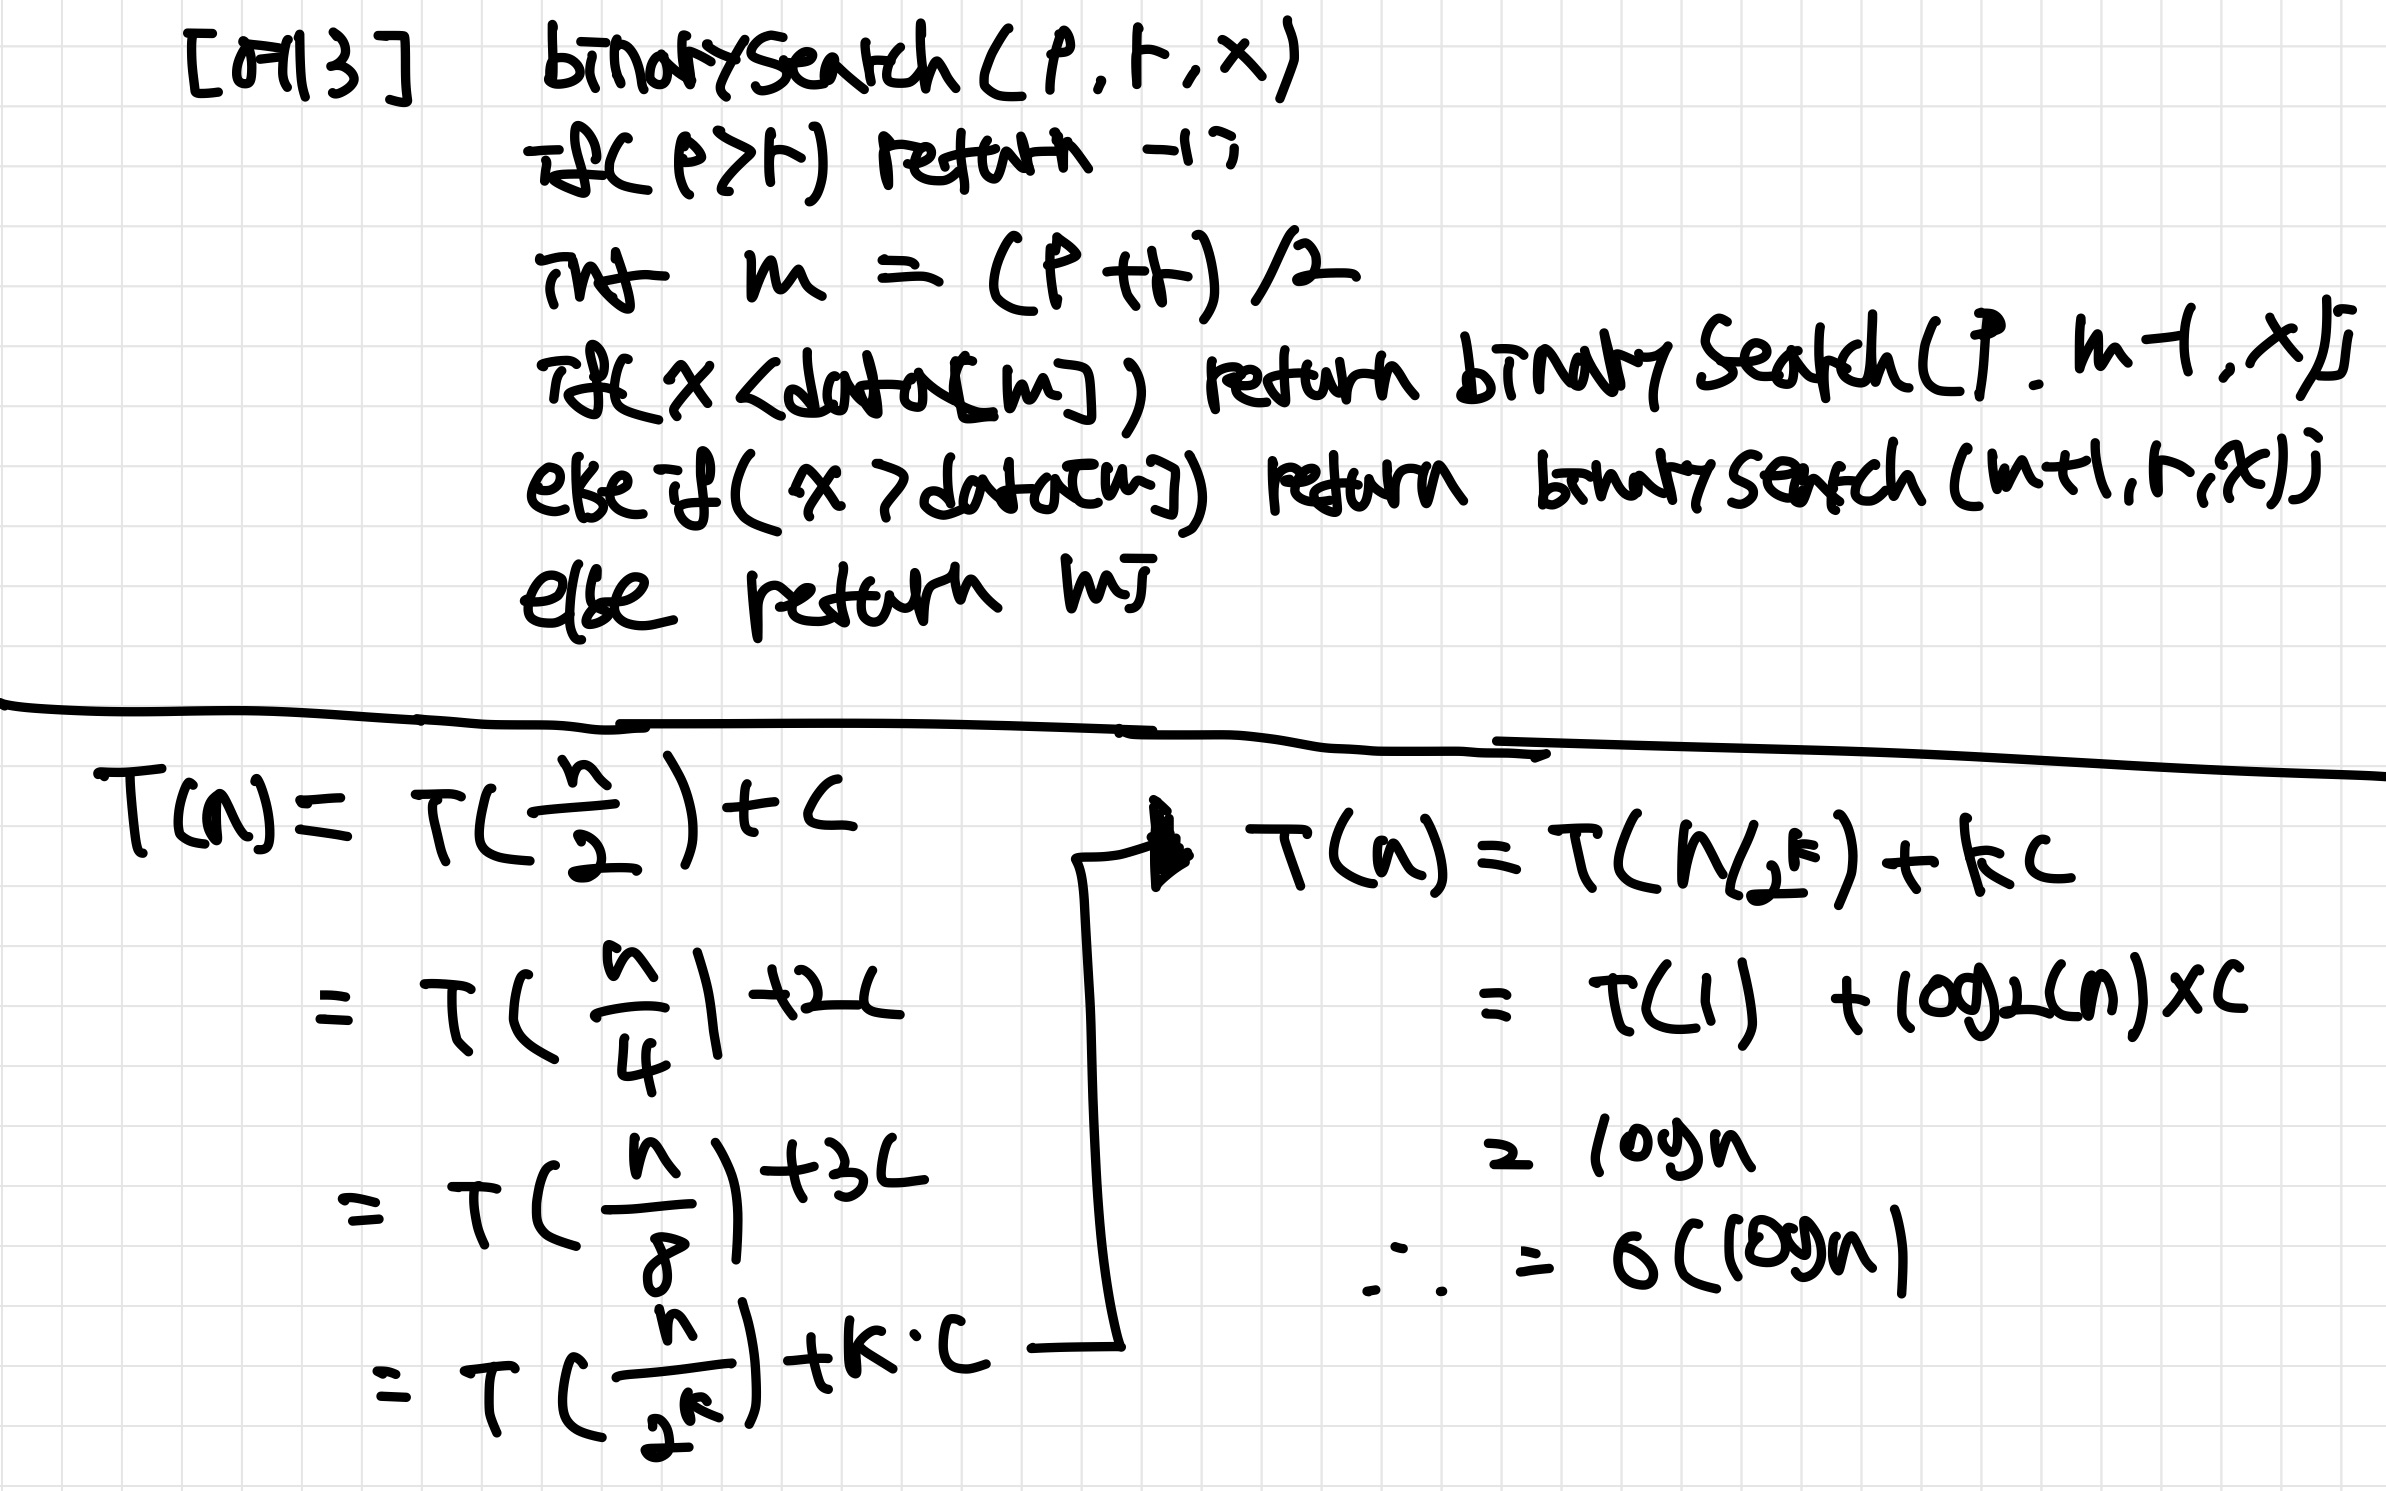 [예제3] binarySearch(p, r, x)
if(p>r) return -1;
int m = (p+r)/2
if(x<data[m]) return binarySearch(p, m-1, x);
else if(x>data[m]) return binarySearch(m+1, r, x);
else return m;
T(n) = T(n/2) + C
= T(n/4) + 2C
= T(n/8) + 3C
= T(n/2^k) + k·C
T(n) = T(n/2^k) + kC
= T(1) + log2(n)×C
= logn
∴ = O(logn)